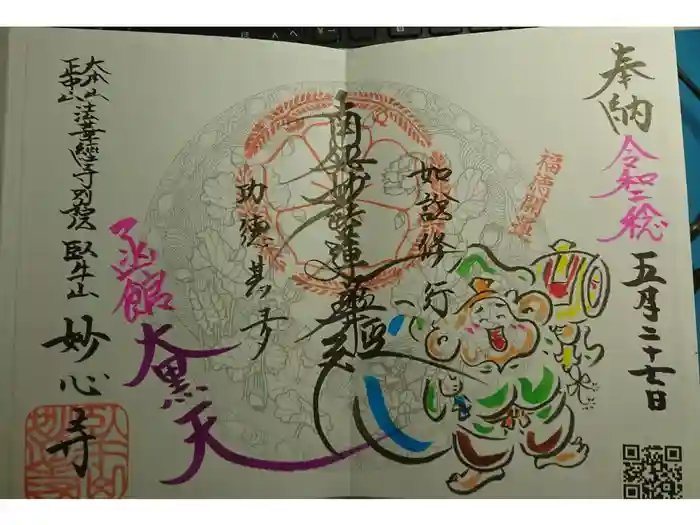 奉納
令和二稔
五月二十七日
福徳開運
如説修行
南無妙法蓮華経
功徳甚多
函館
大黒天
大本山
正中山
法華経寺別院
臥牛山
妙心寺